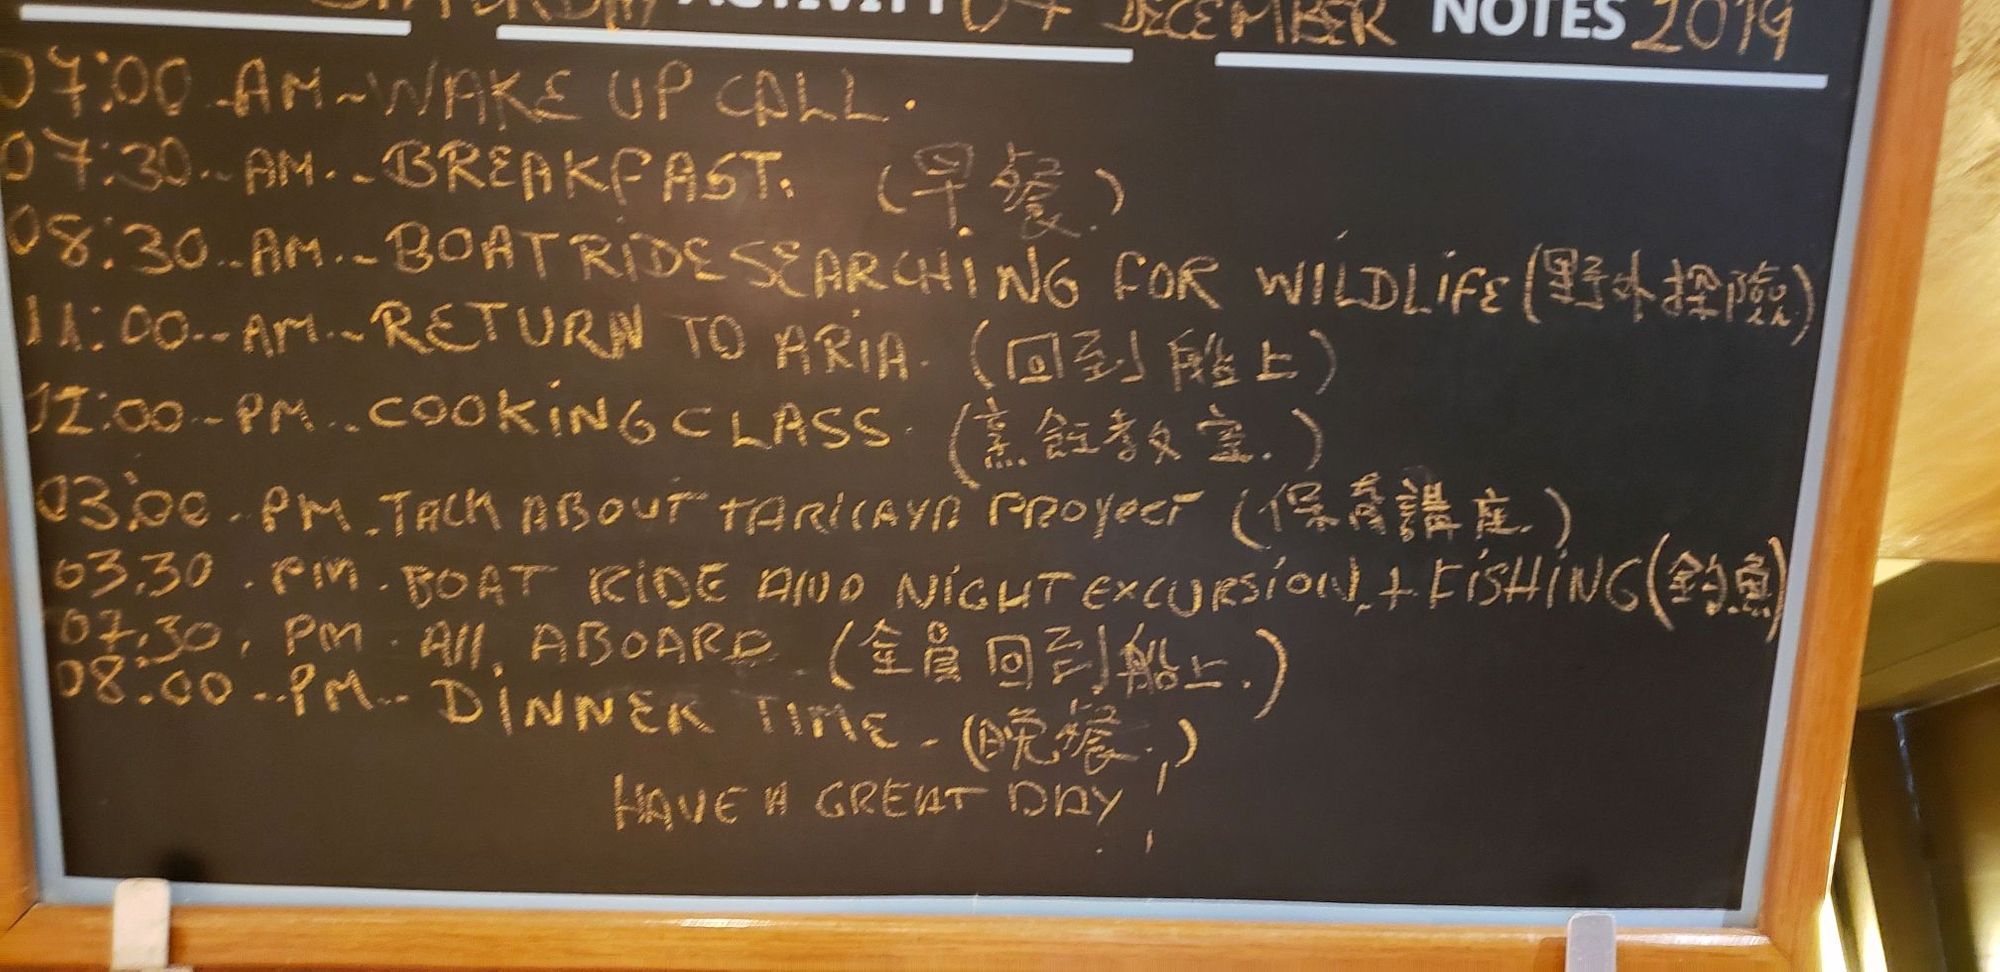 SATURDAY ACTIVITY 07 DECEMBER NOTES 2019
07:00 AM~WAKE UP CALL.
07:30..AM..-BREAKFAST. (早餐.)
08:30..AM..-BOAT RIDE SEARCHING FOR WILDLIFE (野外探險)
11:00..AM..-RETURN TO ARIA. (回到船上)
12:00..PM..COOKING CLASS. (烹飪教室.)
03:00.PM.TALK ABOUT TARICAYA PROYECT (保護講座.)
03.30.PM.BOAT RIDE AND NIGHT EXCURSION.+ FISHING (釣魚)
07.30.PM.All ABOARD (全員回到船上.)
08.00..PM..DINNER TIME. (晚餐.)
HAVE A GREAT DAY!